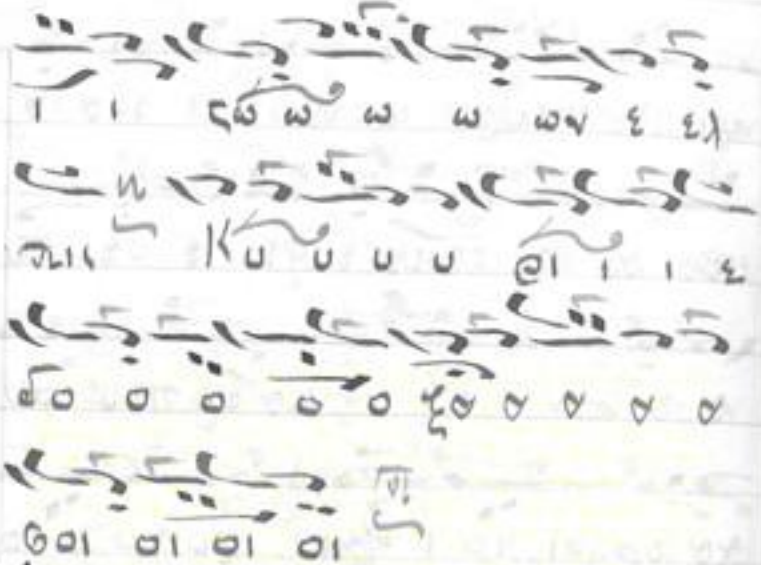 ι ι ζω ω ω ω ων ε ελ
πις Κυ υ υ υ ρι ι ι ε
δο ο ο ο ο ξα α α α α
σοι οι οι οι